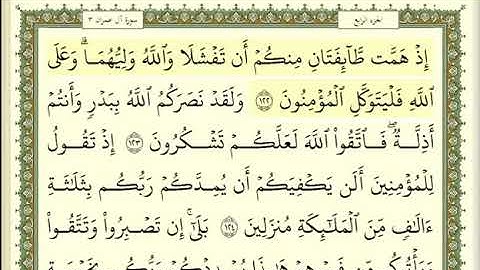 سورة آل عمران ٣
الجزء الرابع
إِذْ هَمَّت طَّآئِفَتَانِ مِنكُمْ أَن تَفْشَلَا وَٱللَّهُ وَلِيُّهُمَا ۗ وَعَلَى
ٱللَّهِ فَلْيَتَوَكَّلِ ٱلْمُؤْمِنُونَ ١٢٢ وَلَقَدْ نَصَرَكُمُ ٱللَّهُ بِبَدْرٍ وَأَنتُمْ
أَذِلَّةٌ ۖ فَٱتَّقُوا۟ ٱللَّهَ لَعَلَّكُمْ تَشْكُرُونَ ١٢٣ إِذْ تَقُولُ
لِلْمُؤْمِنِينَ أَلَن يَكْفِيَكُمْ أَن يُمِدَّكُمْ رَبُّكُم بِثَلَـٰثَةِ
ءَالَـٰفٍ مِّنَ ٱلْمَلَـٰٓئِكَةِ مُنزَلِينَ ١٢٤ بَلَىٰٓ ۚ إِن تَصْبِرُوا۟ وَتَتَّقُوا۟